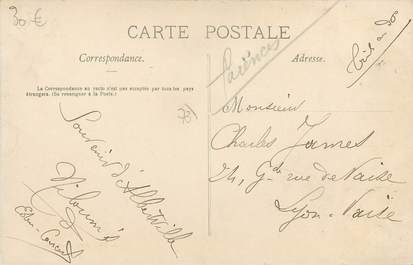 30 €
CARTE POSTALE
Correspondance.
Adresse.
La Correspondance au recto n'est pas acceptée par tous les pays
étrangers. (Se renseigner à la Poste.)
73
Souvenir d'Albertville
Monsieur
Charles James
24, Gde rue de Vaise
Lyon-Vaise